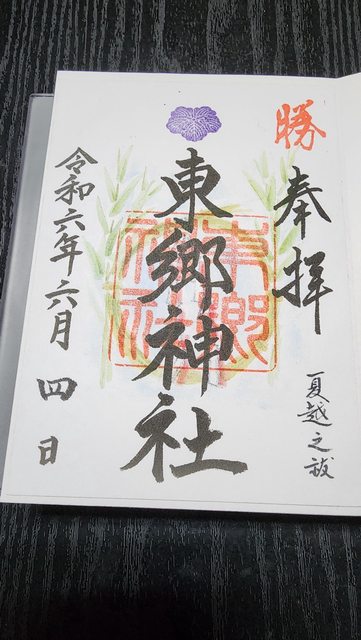 勝
奉拝
夏越之祓
東郷神社
東郷神社
令和六年六月四日